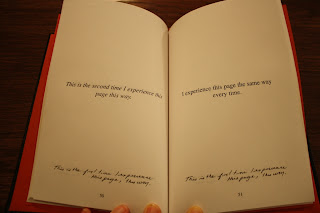 This is the second time I experience this
page this way.
This is the first time I experience
this page, this way.
90
I experience this page the same way
every time.
This is the first time I experience
this page, this way.
91